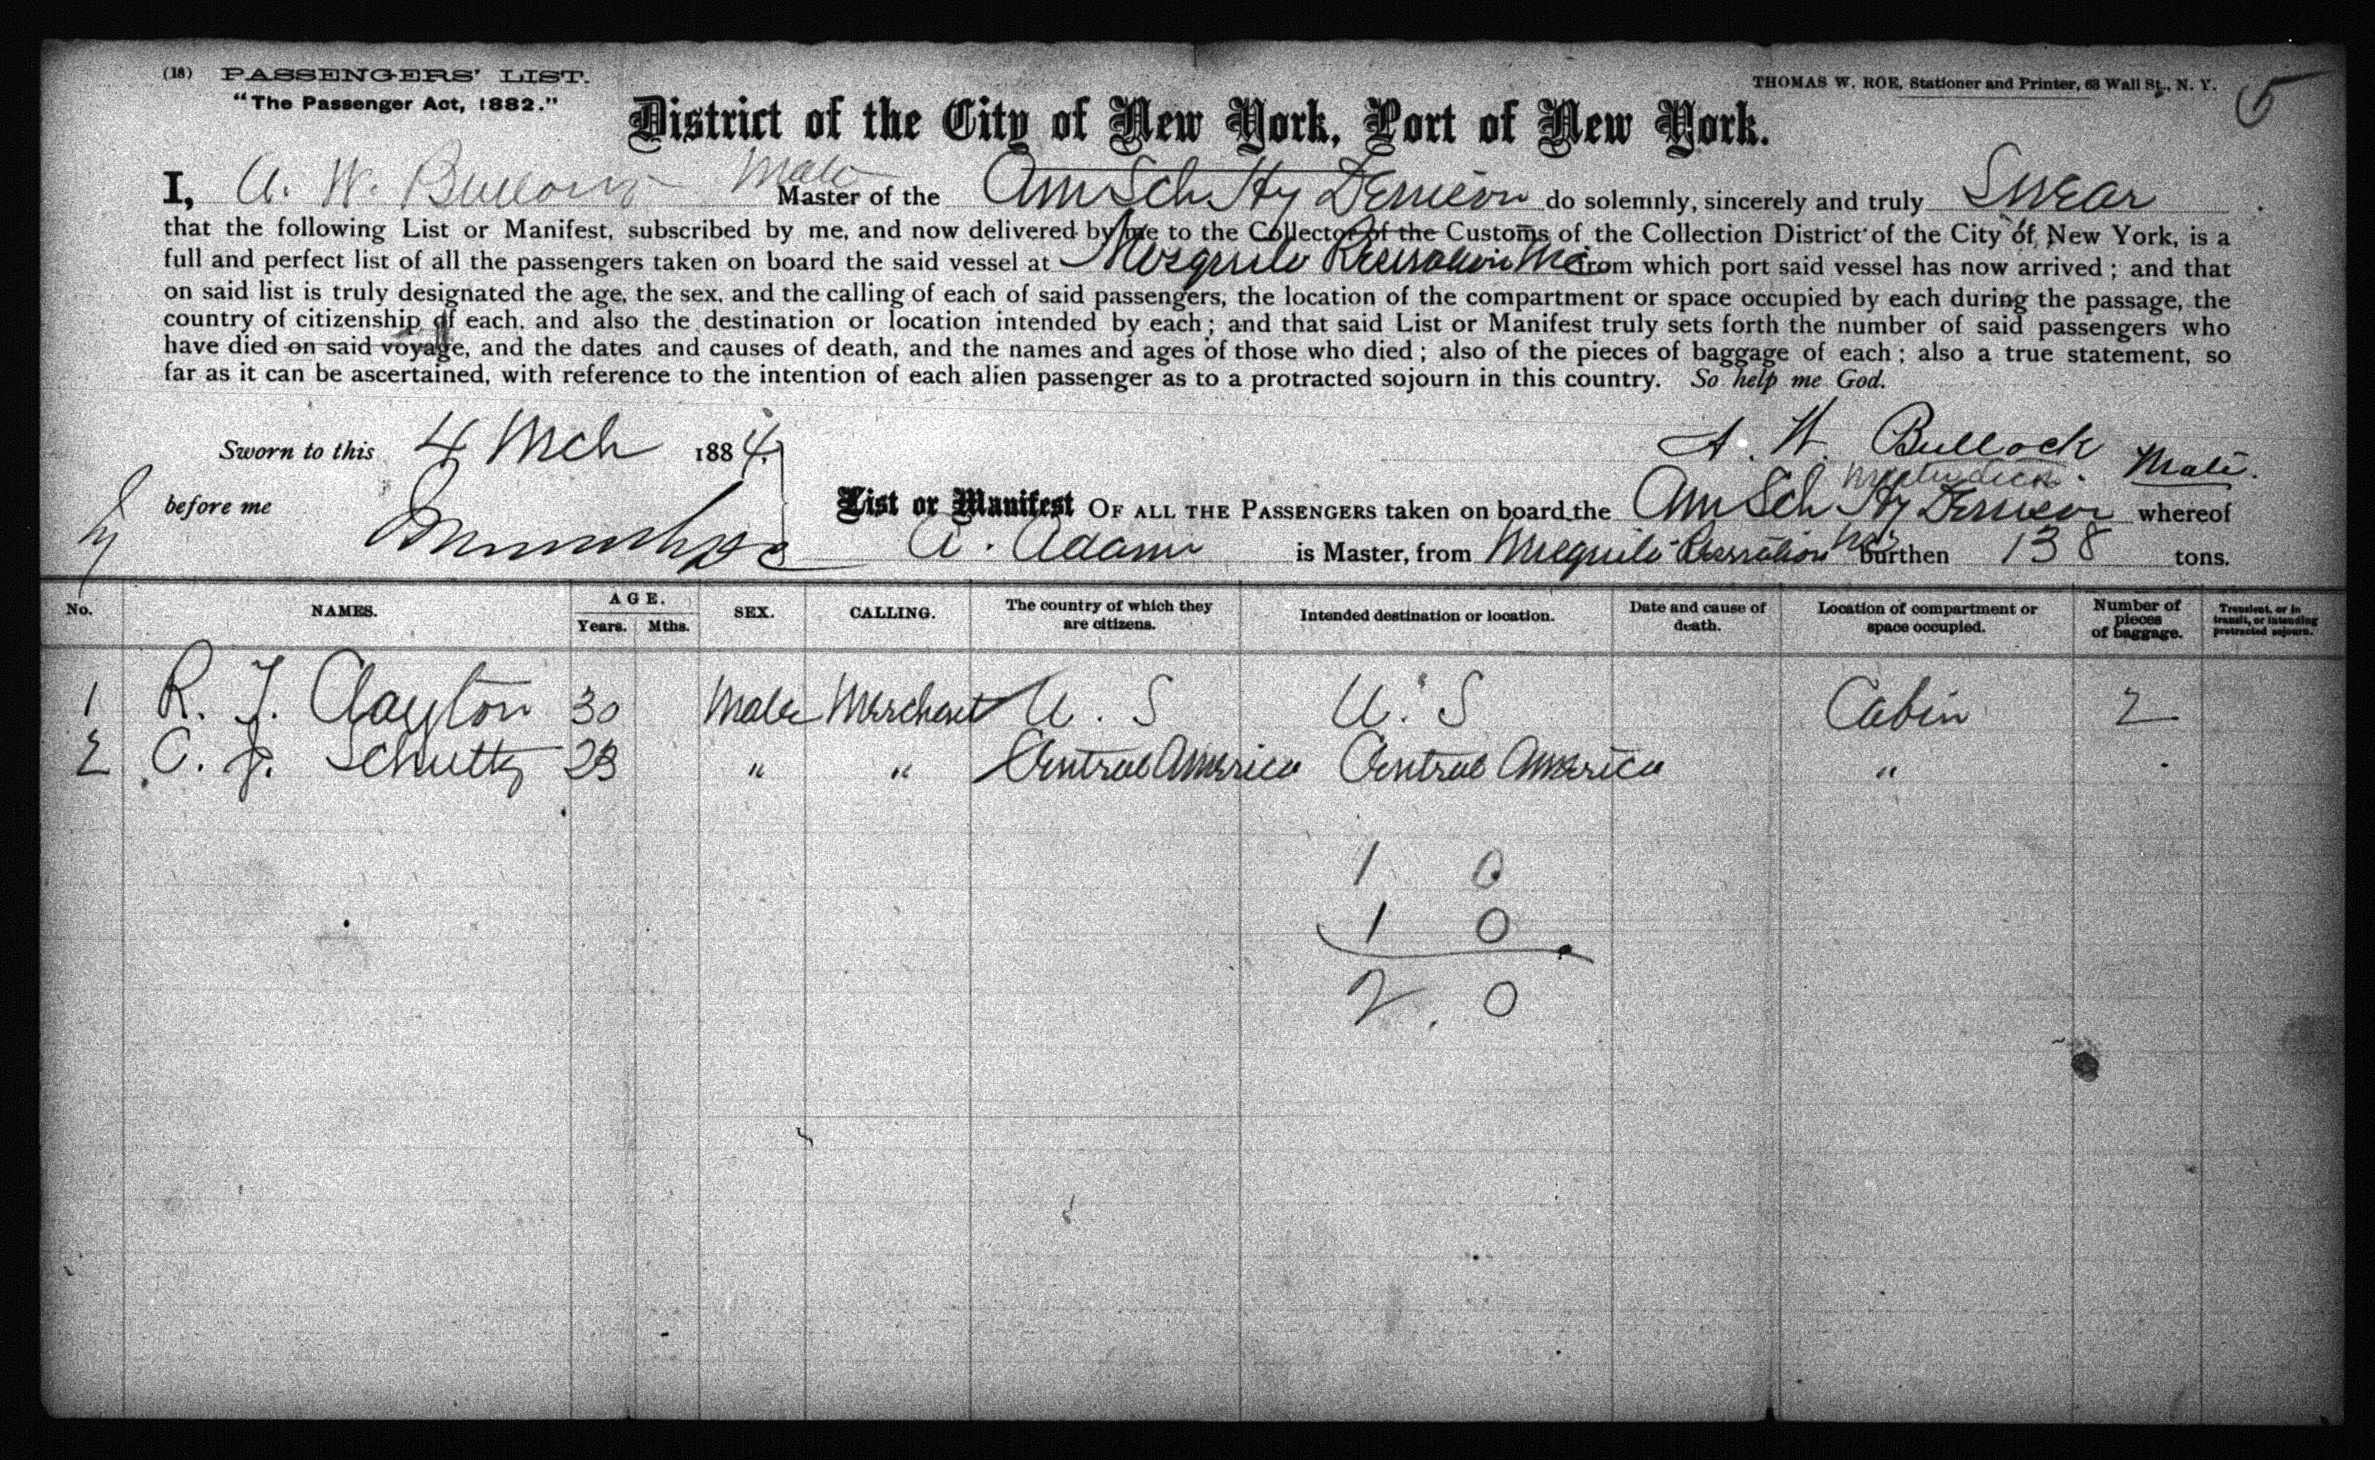 (18) PASSENGERS' LIST.
"The Passenger Act, 1882."
THOMAS W. ROE, Stationer and Printer, 63 Wall St., N. Y.
5
District of the City of New York, Port of New York.
I, A. W. Bullock Mate Master of the Am Sch Hy do solemnly, sincerely and truly Swear
that the following List or Manifest, subscribed by me, and now delivered by me to the Collector of the Customs of the Collection District of the City of New York, is a
full and perfect list of all the passengers taken on board the said vessel at Mosquito Reservation from which port said vessel has now arrived; and that
on said list is truly designated the age, the sex, and the calling of each of said passengers, the location of the compartment or space occupied by each during the passage, the
country of citizenship of each, and also the destination or location intended by each; and that said List or Manifest truly sets forth the number of said passengers who
have died on said voyage, and the dates and causes of death, and the names and ages of those who died; also of the pieces of baggage of each; also a true statement, so
far as it can be ascertained, with reference to the intention of each alien passenger as to a protracted sojourn in this country. So help me God.
Sworn to this 4 Mch 1884.
A. W. Bullock Mate.
before me
List or Manifest OF ALL THE PASSENGERS taken on board the Am Sch Hy whereof
A. Adams is Master, from Mosquito Reservation burthen 138 tons.
No. NAMES. AGE. Years. Mths. SEX. CALLING. The country of which they are citizens. Intended destination or location. Date and cause of death. Location of compartment or space occupied. Number of pieces of baggage. Transient, or in transit, or intending protracted sojourn.
1 R. J. Clayton 30 Male Merchant U. S U. S Cabin 2
2 C. J. Schultz 23 " " Central America Central America "
1 0
1 0
2 0